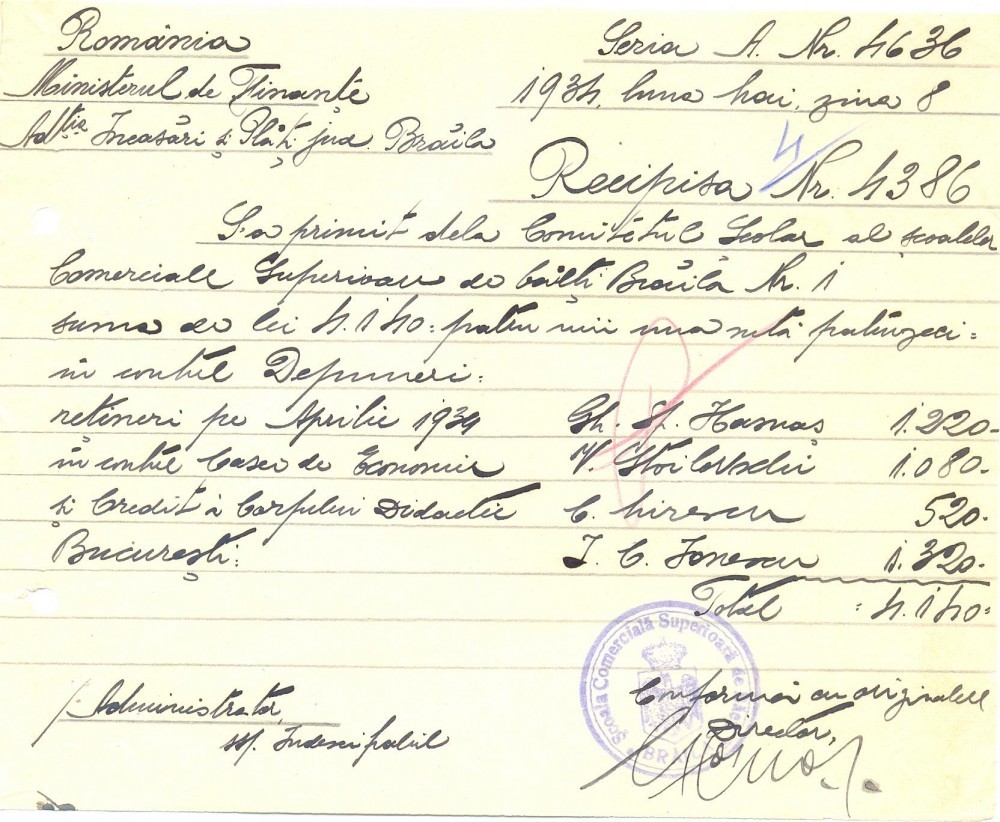 România
Seria A. Nr. 4636
Ministerul de Finanțe
1934, luna Mai, ziua 8
Adția Încasări și Plăți jud. Brăila
4
Recipisa Nr. 4386
S-a primit dela Comitetul Școlar al școalelor
Comerciale Superioare de băeți Brăila Nr. 1
suma de lei 4.140 = patru mii una sută patruzeci =
în contul Depuneri:
rețineri pe Aprilie 1934 Gh. Șt. Hamaș 1.220-
în contul Casei de Economie V. 1.080-
și Credit a Corpului Didactic C. Mirescu 520-
București: I. C. Ionescu 1.320-
Total = 4.140=
Școala Comercială Superioară de Băeți
BRĂILA
Conformă cu originalul
Administrator,
Director,
ss. Indescifrabil